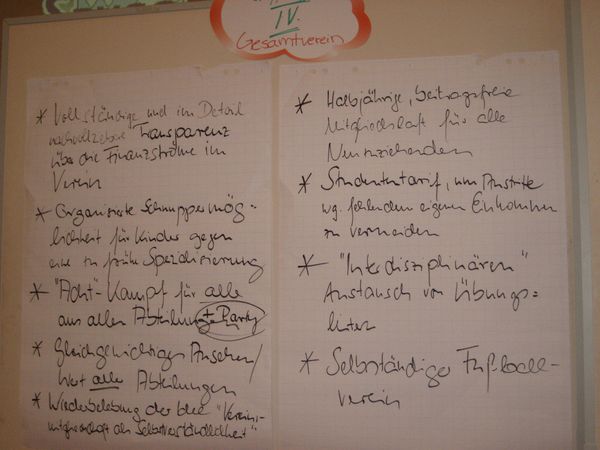 IV.
Gesamtverein
* Vollständige und im Detail
nachvollziehbare Transparenz
über die Finanzströme im
Verein
* Organisierte Schnuppermög-
lichkeit für Kinder gegen
eine zu frühe Spezialisierung
* "Acht"-Kampf für alle
aus allen Abteilungen + Party
* Gleichgewichtiges Ansehen/
Wert alle Abteilungen
* Wiederbelebung der Idee "Vereins-
mitgliedschaft als Selbstverständlichkeit"
* Halbjährige, beitragsfreie
Mitgliedschaft für alle
Neuzuziehenden
* Studententarif, um Austritte
wg. fehlendem eigenen Einkommen
zu vermeiden
* "Interdisziplinären"
Austausch von Übungs-
leiter
* Selbständiger Fußball-
verein